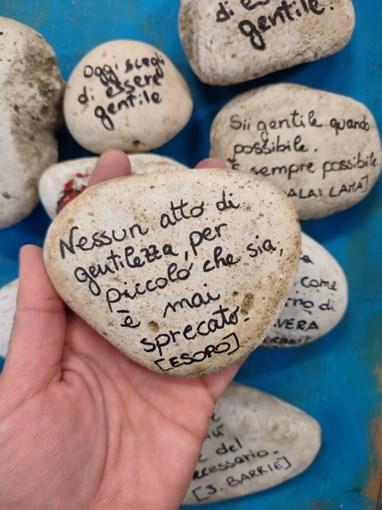 di
gentile.
Oggi scegli
di essere
gentile
Sii gentile quando
possibile.
È sempre possibile
DALAI LAMA]
Nessun atto di
gentilezza, per
piccolo che sia,
è mai
sprecato.
[ESOPO]
come
di
del
[J. BARRIE]